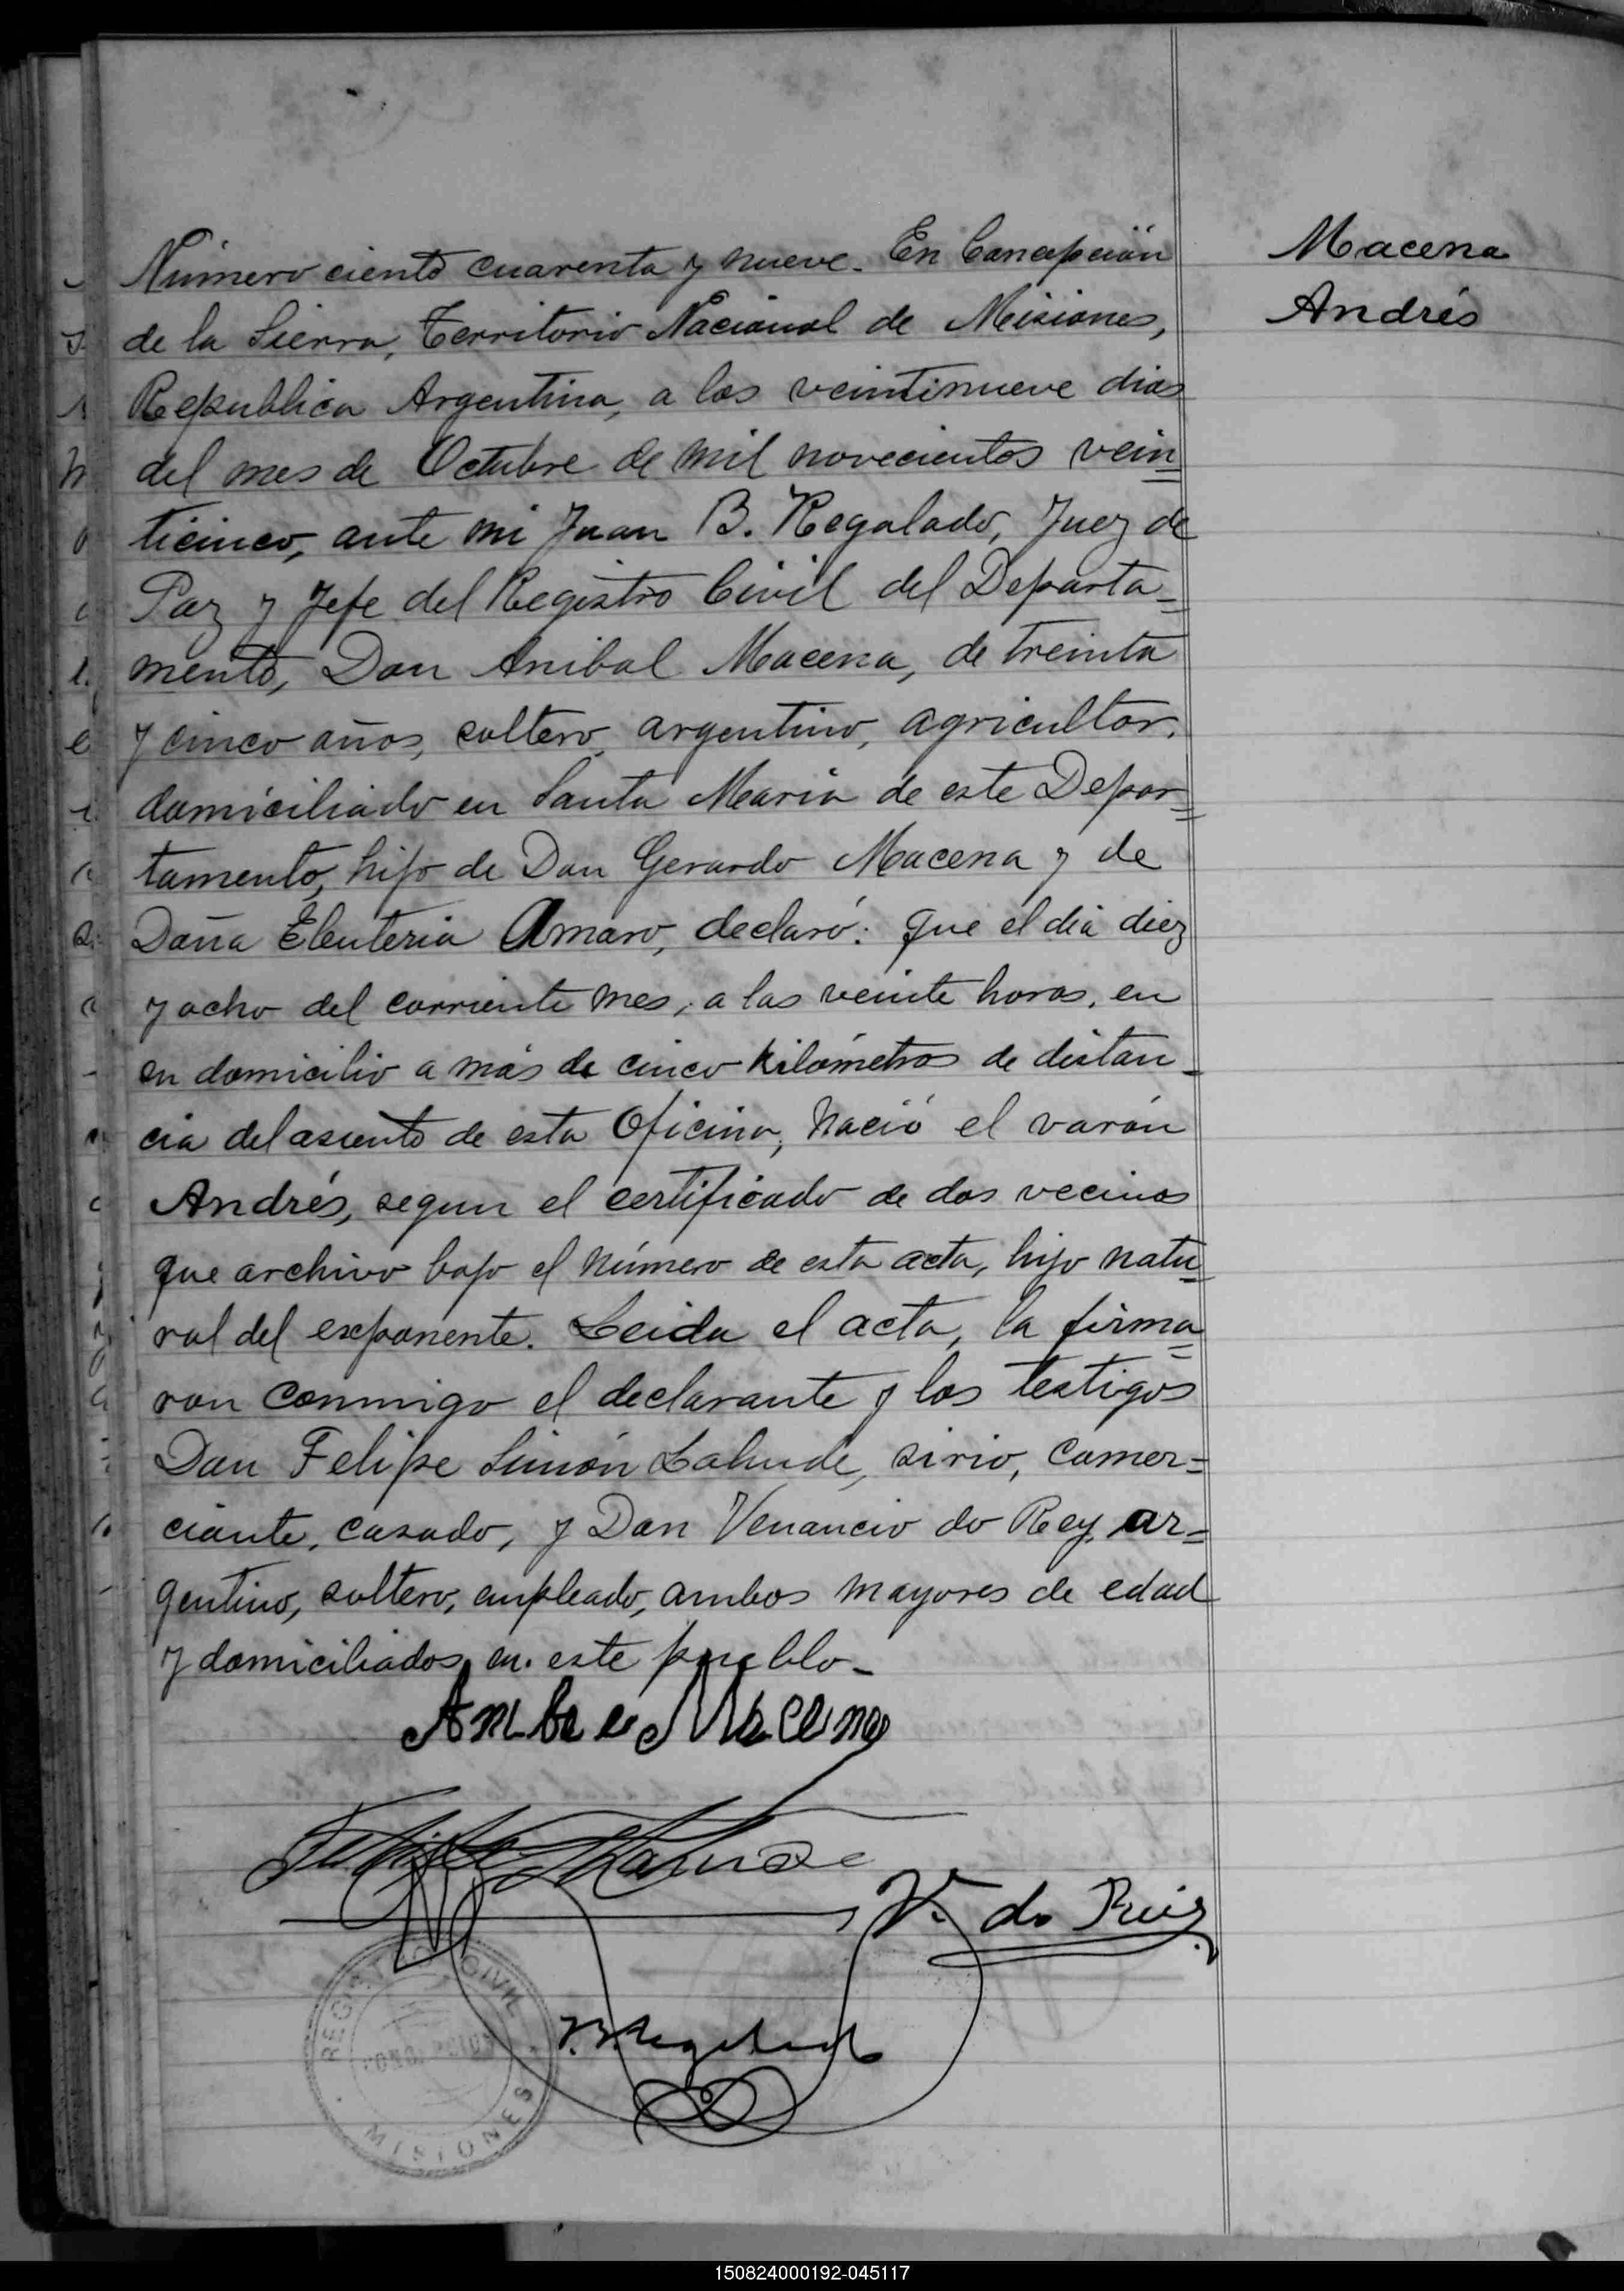 Macena
Andrés
Número ciento cuarenta y nueve. En Concepción
de la Sierra, Territorio Nacional de Misiones,
Republica Argentina, a los veintinueve dias
del mes de Octubre de mil novecientos vein=
ticinco, ante mi Juan B. Regalado, Juez de
Paz y Jefe del Registro Civil del Departa=
mento, Don Anibal Macena, de treinta
y cinco años, soltero, argentino, agricultor,
domiciliado en Santa Maria de este Depar=
tamento, hijo de Don Gerardo Macena y de
Doña Eleuteria Amaro, declaró: que el dia diez
y ocho del corriente mes, a las veinte horas, en
su domicilio a más de cinco kilómetros de distan=
cia del asiento de esta Oficina, nació el varón
Andrés, segun el certificado de dos vecinos
que archivo bajo el número de esta acta, hijo natu=
ral del exponente. Leida el acta, la firma=
ron conmigo el declarante y los testigos
Don Felipe Simón Lahude, sirio, comer=
ciante, casado, y Don Venancio do Rey, ar=
gentino, soltero, empleado, ambos mayores de edad
y domiciliados en este pueblo.
Macena
V. do
REGISTRO CIVIL
CONCEPCION
MISIONES
150824000192-045117